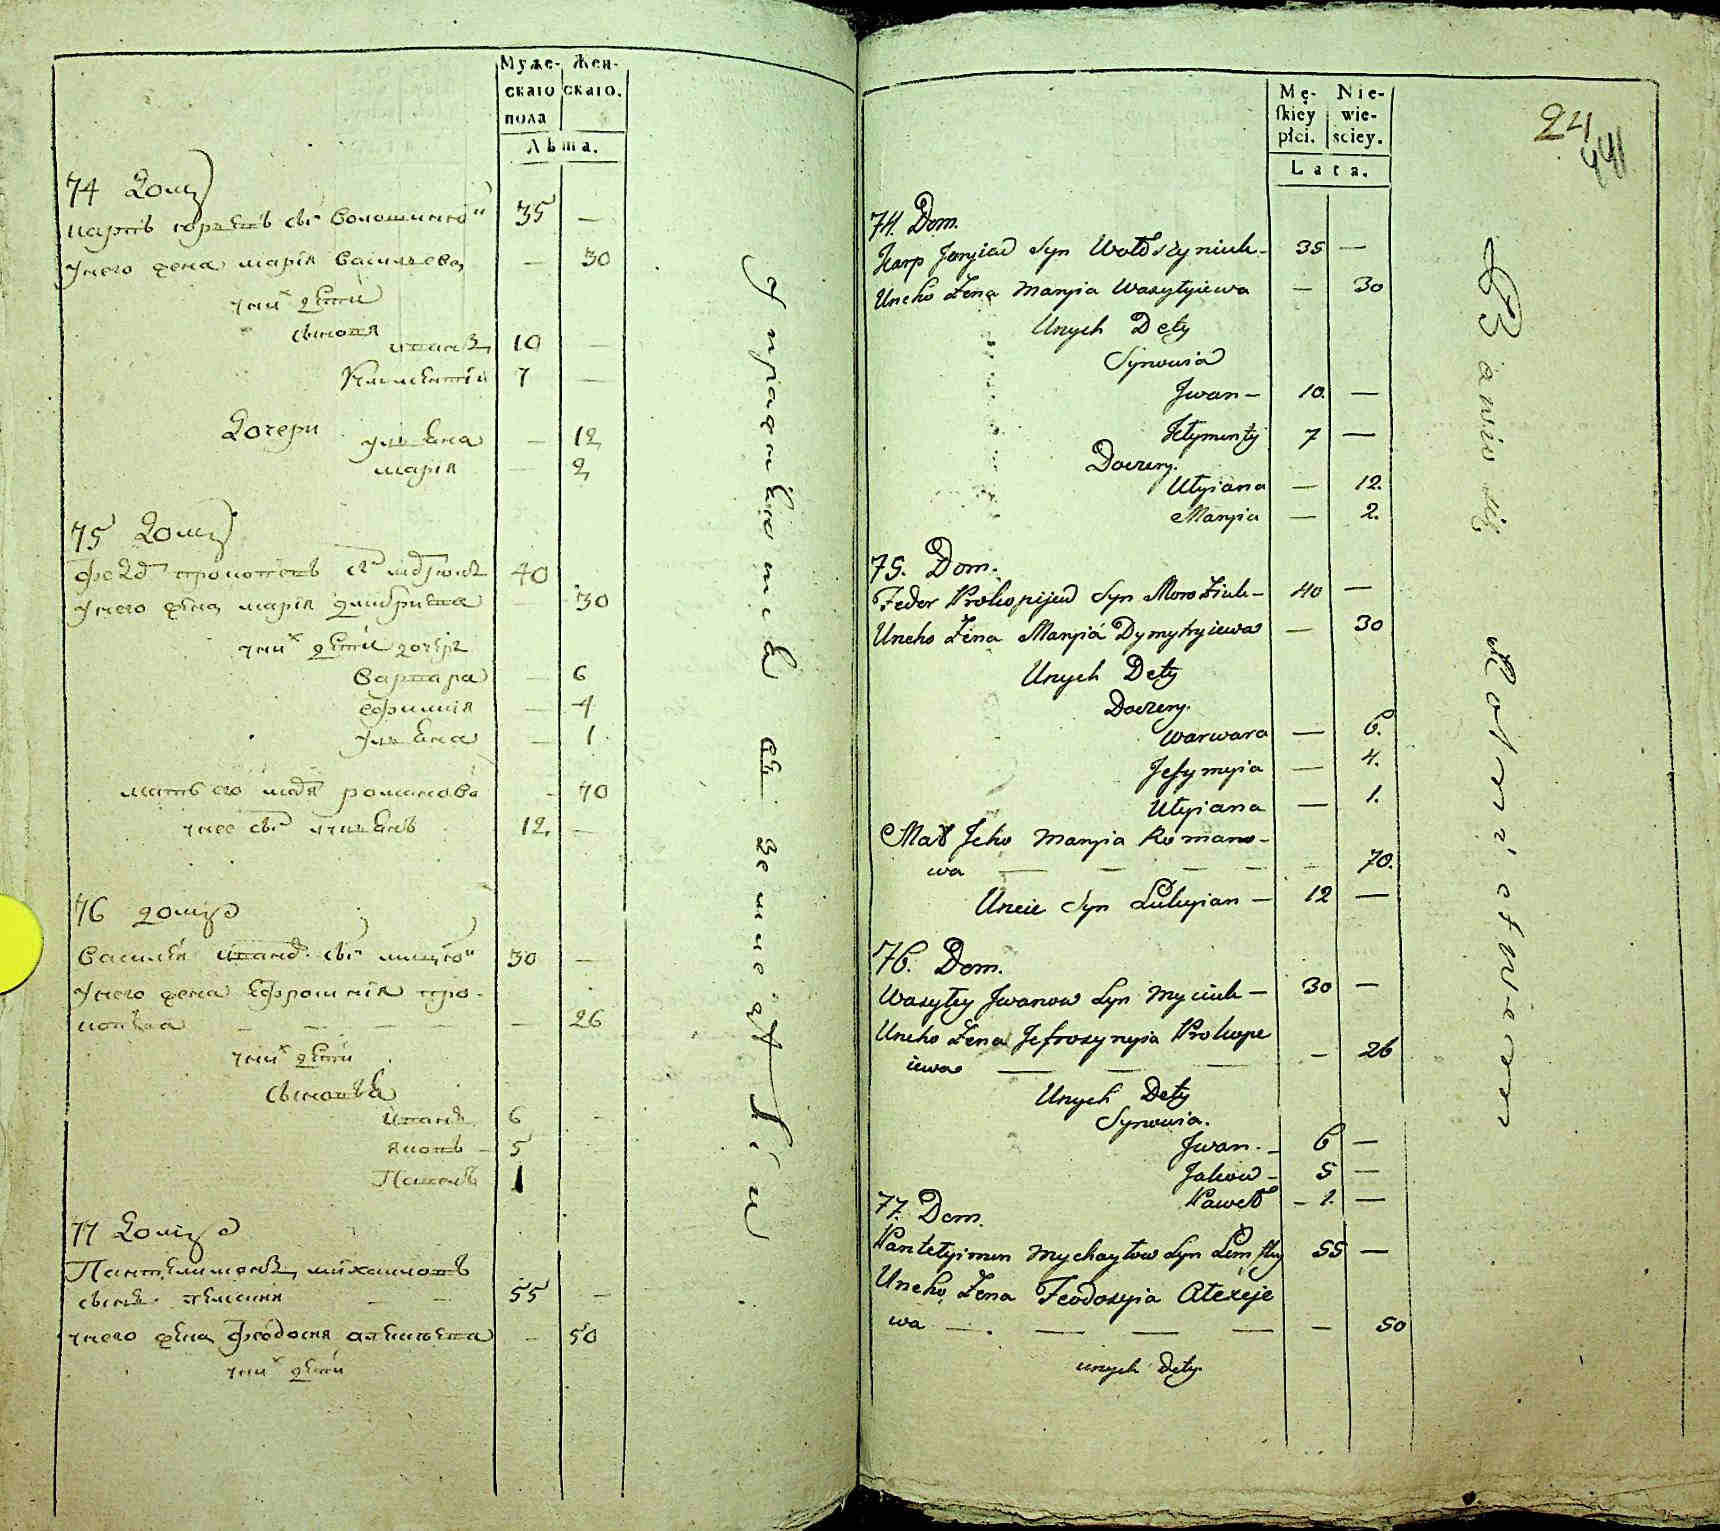 Муже-
скаго
пола
Жен-
скаго.
Лѣта.
74 Дому
Карпъ Юриевъ сынъ
35 —
Унего жена Мария Васильева
— 30
Уних дети
Сыновя
Иванъ 10 —
Климентий 7 —
Дочери
Ульяна — 12
Мария — 2
75 Дому
40
Унего жена Мария Дмитриева — 30
Уних дети дочери
Варвара — 6
Ефимия — 4
Ульяна — 1
Мать его Романова — 70
унее сынъ 12 —
76 Дому
Василей Иванов сынъ 30 —
Унего жена Ефросиния Про-
копева — — — — 26
Уних дети
Сыновья
Иванъ 6 —
Яковъ — 5
Павелъ 1
77 Дому
Пантелимонъ Михайловъ
сынъ — — 55 —
Унего жена Феодосия Алексеева — 50
Уних дети
Упражняются въ земледѣлiи
Mę-
skiey
płci.
Nie-
wie-
sciey.
Lata.
24
441
74. Dom.
Karp Juryiew Syn Wołoszyniuk — 35 —
Uneho Żena Maryia Wasylyiewa — 30
Unych Dety
Synowia
Jwan — 10. —
Kłymentij 7 —
Doczery.
Ulyiana — 12.
Maryia — 2.
75. Dom.
Fedor Prokopijew Syn Moroziuk — 40 —
Uneho Żena Maryia Dymytryiewa — 30
Unych Dety
Doczery.
Warwara — 6.
Jefymyia — 4.
Ulyiana — 1.
Mat Jeho Maryia Romano-
wa — — — — — 70.
Uneie Syn Lukyian — 12 —
76. Dom.
Wasyley Jwanow Syn Myciuk — 30 —
Uneho Żena Jefrosynyia Prokope
iewa — — — — 26
Unych Dety
Synowia.
Jwan. — 6 —
Jakow — 5 —
Paweł — 1. —
77. Dom.
Pantelyimon Mychayłow Syn 55 —
Uneho Żena Feodosyia Alexeje
wa — — — — — 50
unych dety.
Bawią się Rolnictwem